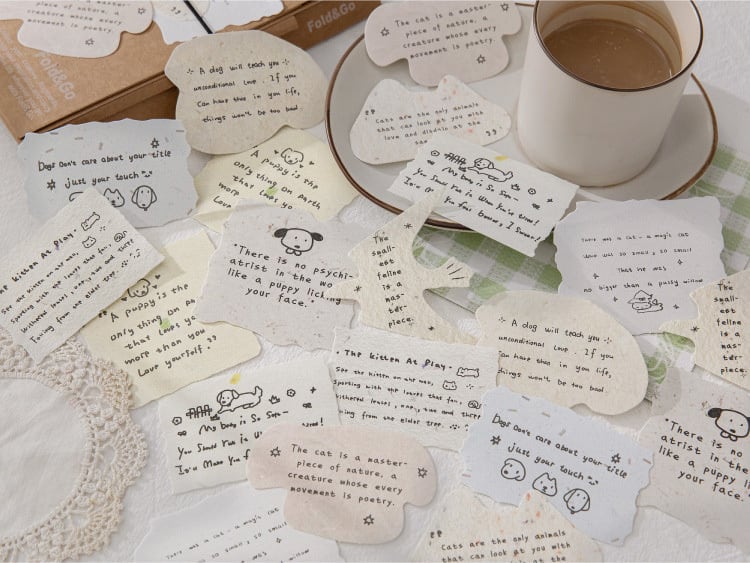 Fold&Go
Fold&Go
The cat is a master-
piece of nature, a
creature whose every
movement is poetry.
A dog will teach you
unconditional love. If you
Can have this in you life,
things won't be too bad.
Cats are the only animals
that can look at you with
love and disdain at the
Dogs Don't care about your title
just your touch
A puppy is the
only thing on earth
that loves yo
more
My baby is so Sora~
The
small-
est
feline
is a
mas-
ter-
piece.
There was a cat - a magic cat
Who was so small, so small
That he was
no bigger than a pussy willow
The Kitten At Play.
See the kitten on the wall,
Sporting with the leaves that fall,
Withered leaves, one, two and three
Falling from the elder tree.
"There is no psychi-
atrist in the wo
like a puppy licking
your face."
A puppy is the
only thing on
that loves yo
more than you
Love yourself."
The Kitten At Play.
See the kitten on the wall,
Sporting with the leaves that fall,
withered leaves, one, two and three
Falling from the elder tree.
A dog will teach you
unconditional love. If you
Can have this in you life,
things won't be too bad.
est
feline
is a
piece.
My baby is so Sora~
The cat is a master-
piece of nature, a
creature whose every
movement is poetry.
Dogs Don't care about your title
just your touch
"There is no
atrist in the
like a puppy
your face."
There was a cat - a magic cat
Who was so small, so small
Cats are the only animals
that can look at you with